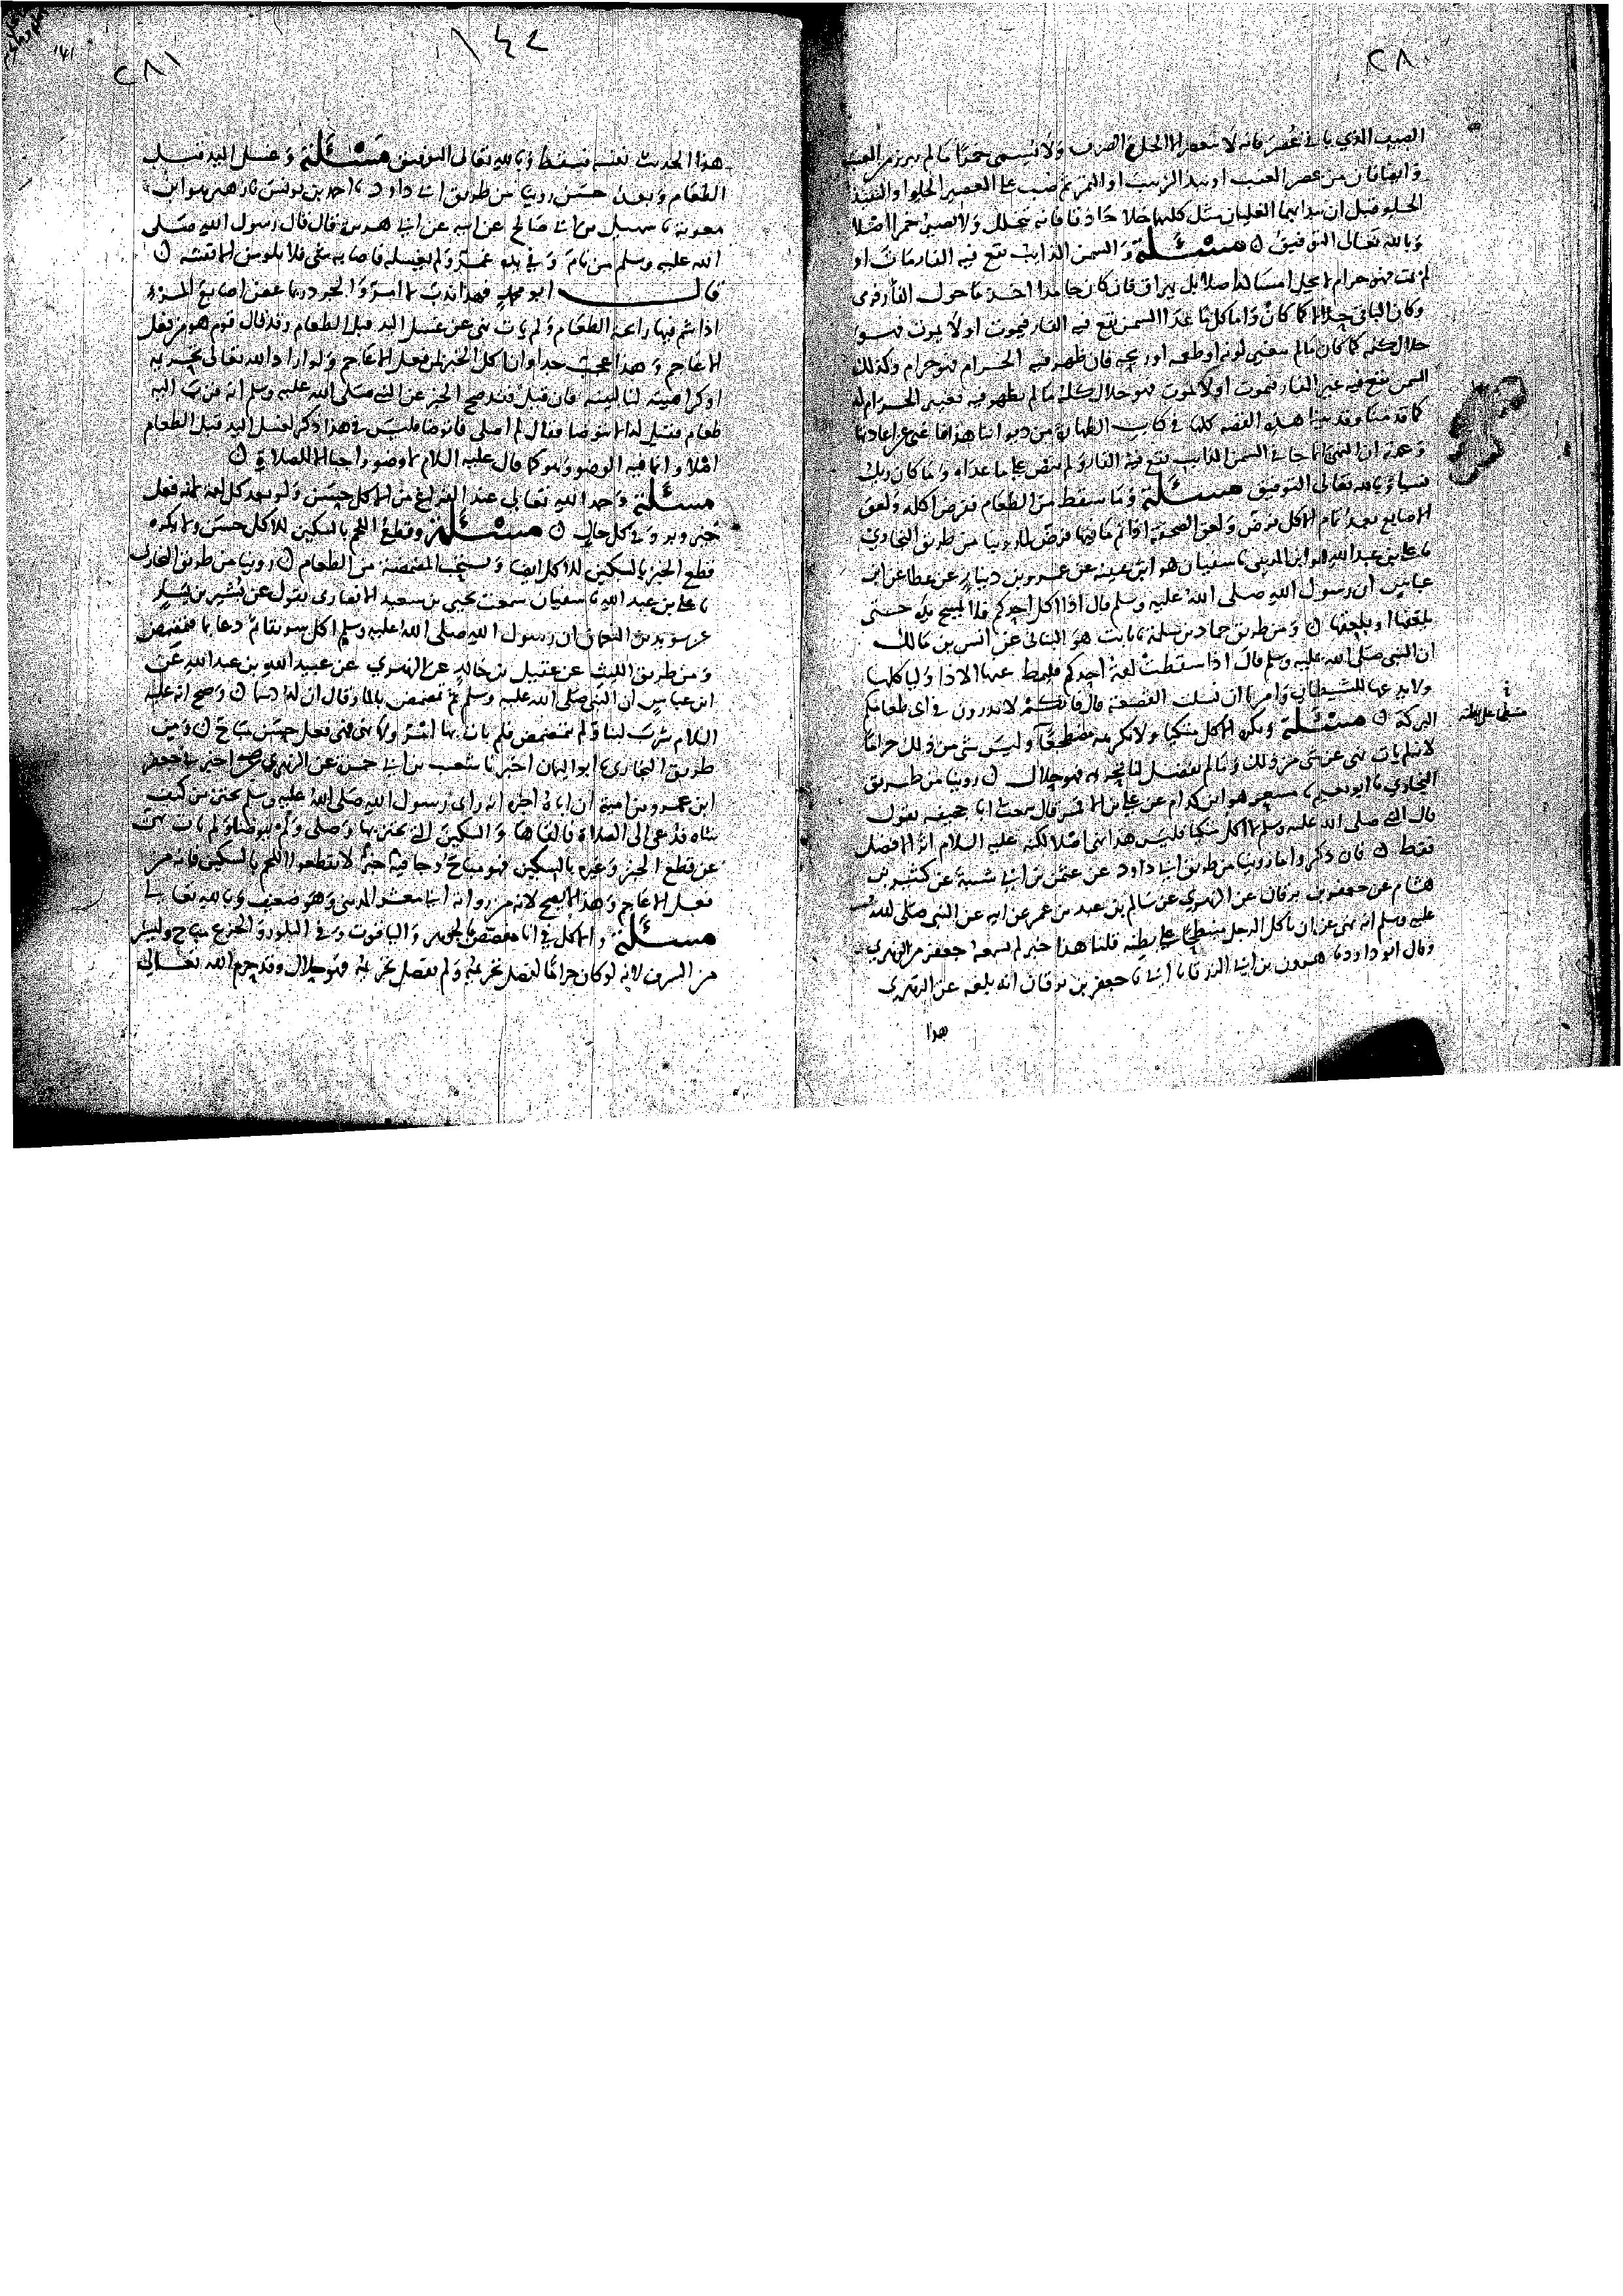 ٢٨٠
الصبيب الذي يأتي عصر فانه لا للخل الصرف ولا تسمى خمرا ما لم يبرز من العنب
وايضا فان من عصر العنب او نبذ الزبيب او التمر ثم صب على العصير الحلو او النبيذ
الحلو قبل ان يبدا بهما الغليان مثل كليهما خلا حاذقا فانه يتخلل ولا يصير خمرا اصلا
وبالله تعالى التوفيق ن مسئلة والسمن الذايب تقع فيه الفار ماتت او
لم تمت فهو حرام لا يحل امساكه اصلا بل يهراق فان كان جامدا اخذ ما حول الفار فرمى
وكان الباقي حلالا كما كان واما كل ما عدا السمن تقع فيه الفار فيموت او لا يموت فهو
حلال كله كما كان ما لم يتغير لونه او طعمه او ريحه فان ظهر فيه الحرام فهو حرام وكذلك
السمن يقع فيه غير الفار فيموت او لا يموت فهو حلال كله ما لم يظهر فيه تغيير الحرام له
كما قدمنا وقد بينا هذه القصة كلها في كتاب الطهارة من ديواننا هذا فاغنى عن اعادتها
وعمدته ان النص انما جا في السمن الذايب تقع فيه الفار ولم ينص على ما عداه وما كان ربك
نسيا وبالله تعالى التوفيق مسئلة وما سقط من الطعام ففرض اكله ولعق
الاصابع بعد تمام الاكل فرض ولعق الصحفة اذا تم ما فيها فرض لما روينا من طريق البخاري
نا علي بن عبد الله هو ابن المديني نا سفيان هو ابن عيينه عن عمرو بن دينار عن عطا عن ابن
عباس ان رسول الله صلى الله عليه وسلم قال اذا اكل احدكم فلا يمسح يده حتى
يلعقها او يلعقها ن ومن طريق حماد بن سلمة نا ثابت هو البناني عن انس بن مالك
ان النبي صلى الله عليه وسلم قال اذا سقطت لقمة احدكم فليمط عنها الاذا وليأكلها
ولا يدعها للشيطان وامرنا ان نسلت القصعة قال فانكم لا تدرون في اي طعامكم
البركة ن مسئلة ويكره الاكل متكيا ولا نكرهه منبطحا وليس شي من ذلك حراما
لانه لم يات نهي عن شي من ذلك وما لم يفصل لنا تحريمه فهو حلال ن روينا من طريق
البخاري نا ابو نعيم نا مسعر هو ابن كدام عن علي بن الاقمر قال سمعت ابا جحيفه يقول
قال النبي صلى الله عليه وسلم لا اكل متكيا فليس هذا نهيا اصلا لكنه عليه السلام اثر الافضل
فقط ن فان ذكروا ما روينا من طريق ابي داود عن عثمن بن ابي شيبة عن كثير بن
هشام عن جعفر بن برقان عن الزهري عن سالم بن عبد الله بن عمر عن ابيه عن النبي صلى الله
عليه وسلم انه نهى عن ان يأكل الرجل منبطحا على بطنه قلنا هذا خبر لم يسمعه جعفر من الزهري
وقال ابو داود نا هرون بن ابي الزرقا نا ابي نا جعفر بن برقان انه بلغه عن الزهري
هذا
٢٨١
١٤٢
هذا الحديث نفسه فسقط وبالله تعالى التوفيق مسئلة وغسل اليد قبل
الطعام وبعده حسن روينا من طريق ابي داود نا احمد بن يونس نا زهير هو ابن
معوية نا سهيل بن ابي صالح عن ابيه عن ابي هريرة قال قال رسول الله صلى
الله عليه وسلم من نام وفي يده غمر ولم يغسله فاصابه شي فلا يلومن الا نفسه ن
قال ابو محمد فهذا ندب لا امر
اذا شم فيها رايحة الطعام ولم يات نهي عن غسل اليد قبل الطعام وقد قال قوم هو من فعل
الاعاجم وهذا عجب جدا وان اكل الخبز لمن فعل الاعاجم ولو اراد الله تعالى تحريمه
او كراهيته لنا لبينه فان قيل فقد صح الخبر عن النبي صلى الله عليه وسلم انه قرب اليه
طعام فقيل له الا نتوضا فقال لم اصلي فاتوضا فليس في هذا ذكر لغسل اليد قبل الطعام
اصلا وانما فيه الوضو وهو كما قال عليه السلام لا وضو واجبا الا للصلاة ن
مسئلة وحمد الله تعالى عند الفراغ من الاكل حسن ولو بعد كل لقمة لانه فعل
خير وبر وفي كل حال ن مسئلة وقطع اللحم بالسكين للاكل حسن ولا نكره
قطع الخبز بالسكين للاكل ايضا وتستحب المضمضة من الطعام ن روينا من طريق البخاري
نا علي بن عبد الله نا سفيان سمعت يحيى بن سعيد الانصاري يقول عن بشير بن يسار
عن سويد بن النعمان ان رسول الله صلى الله عليه وسلم اكل سويقا ثم دعا بما فمضمض
ومن طريق الليث عن عقيل بن خالد عن الزهري عن عبيد الله بن عبد الله عن
ابن عباس ان النبي صلى الله عليه وسلم ثم تمضمض بالما وقال ان له دسما ن وصح انه عليه
السلام شرب لبنا ولم يتمضمض فلم يات بها امر ولا نهي فهي فعل حسن مباح ن ومن
طريق البخاري نا ابو اليمان اخبرنا شعيب بن ابي حمزة عن الزهري اخبرني جعفر
ابن عمرو بن امية ان اباه اخبره انه راى رسول الله صلى الله عليه وسلم يحتز من كتف
شاه فدعي الى الصلاة فالقاها والسكين التي يحتز بها وصلى ولم يتوضا ولم يات نهي
عن قطع الخبز وغيره بالسكين فهو مباح وجا فيه خبر لا تقطعوا اللحم بالسكين فانه من
فعل الاعاجم وهذا لا يصح لانه من رواية ابي معشر المدني وهو ضعيف وبالله تعالى
مسئلة والاكل في انا مفضض بالجوهر والياقوت وفي البلور والجزع مباح وليس
من السرف لانه لو كان حراما لفصل تحريمه ولم يفصل تحريمه فهو حلال وقد حرم الله تعالى